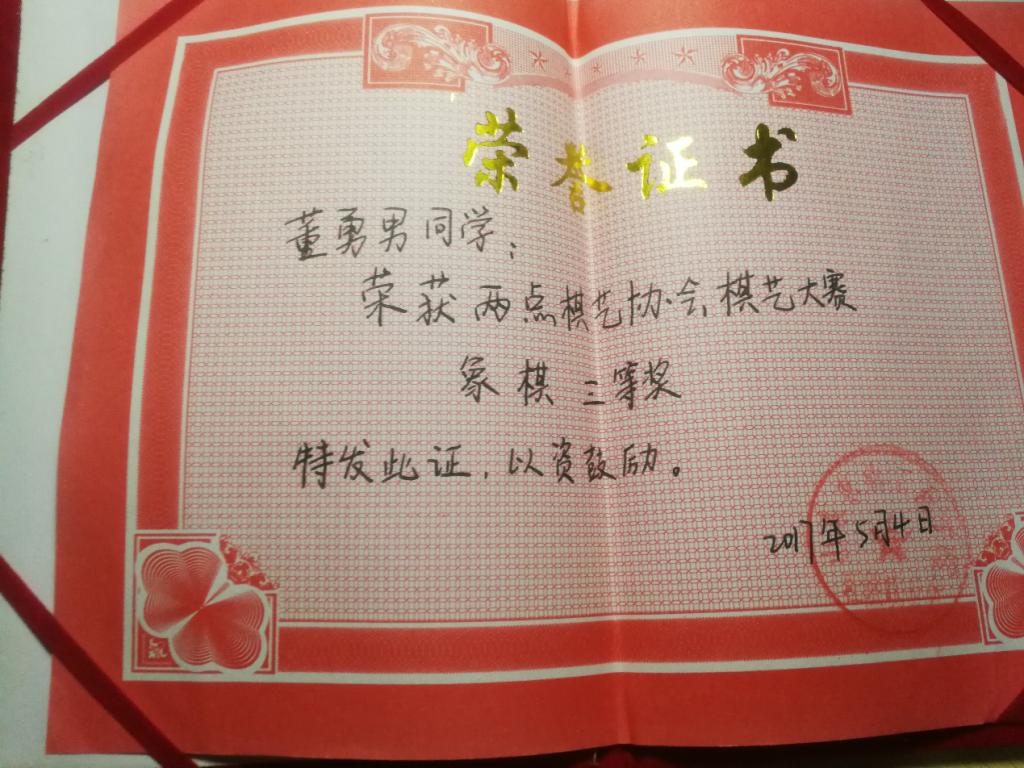 荣誉证书
董勇男同学：
荣获两点棋艺协会棋艺大赛
象棋三等奖
特发此证，以资鼓励。
2017年5月4日